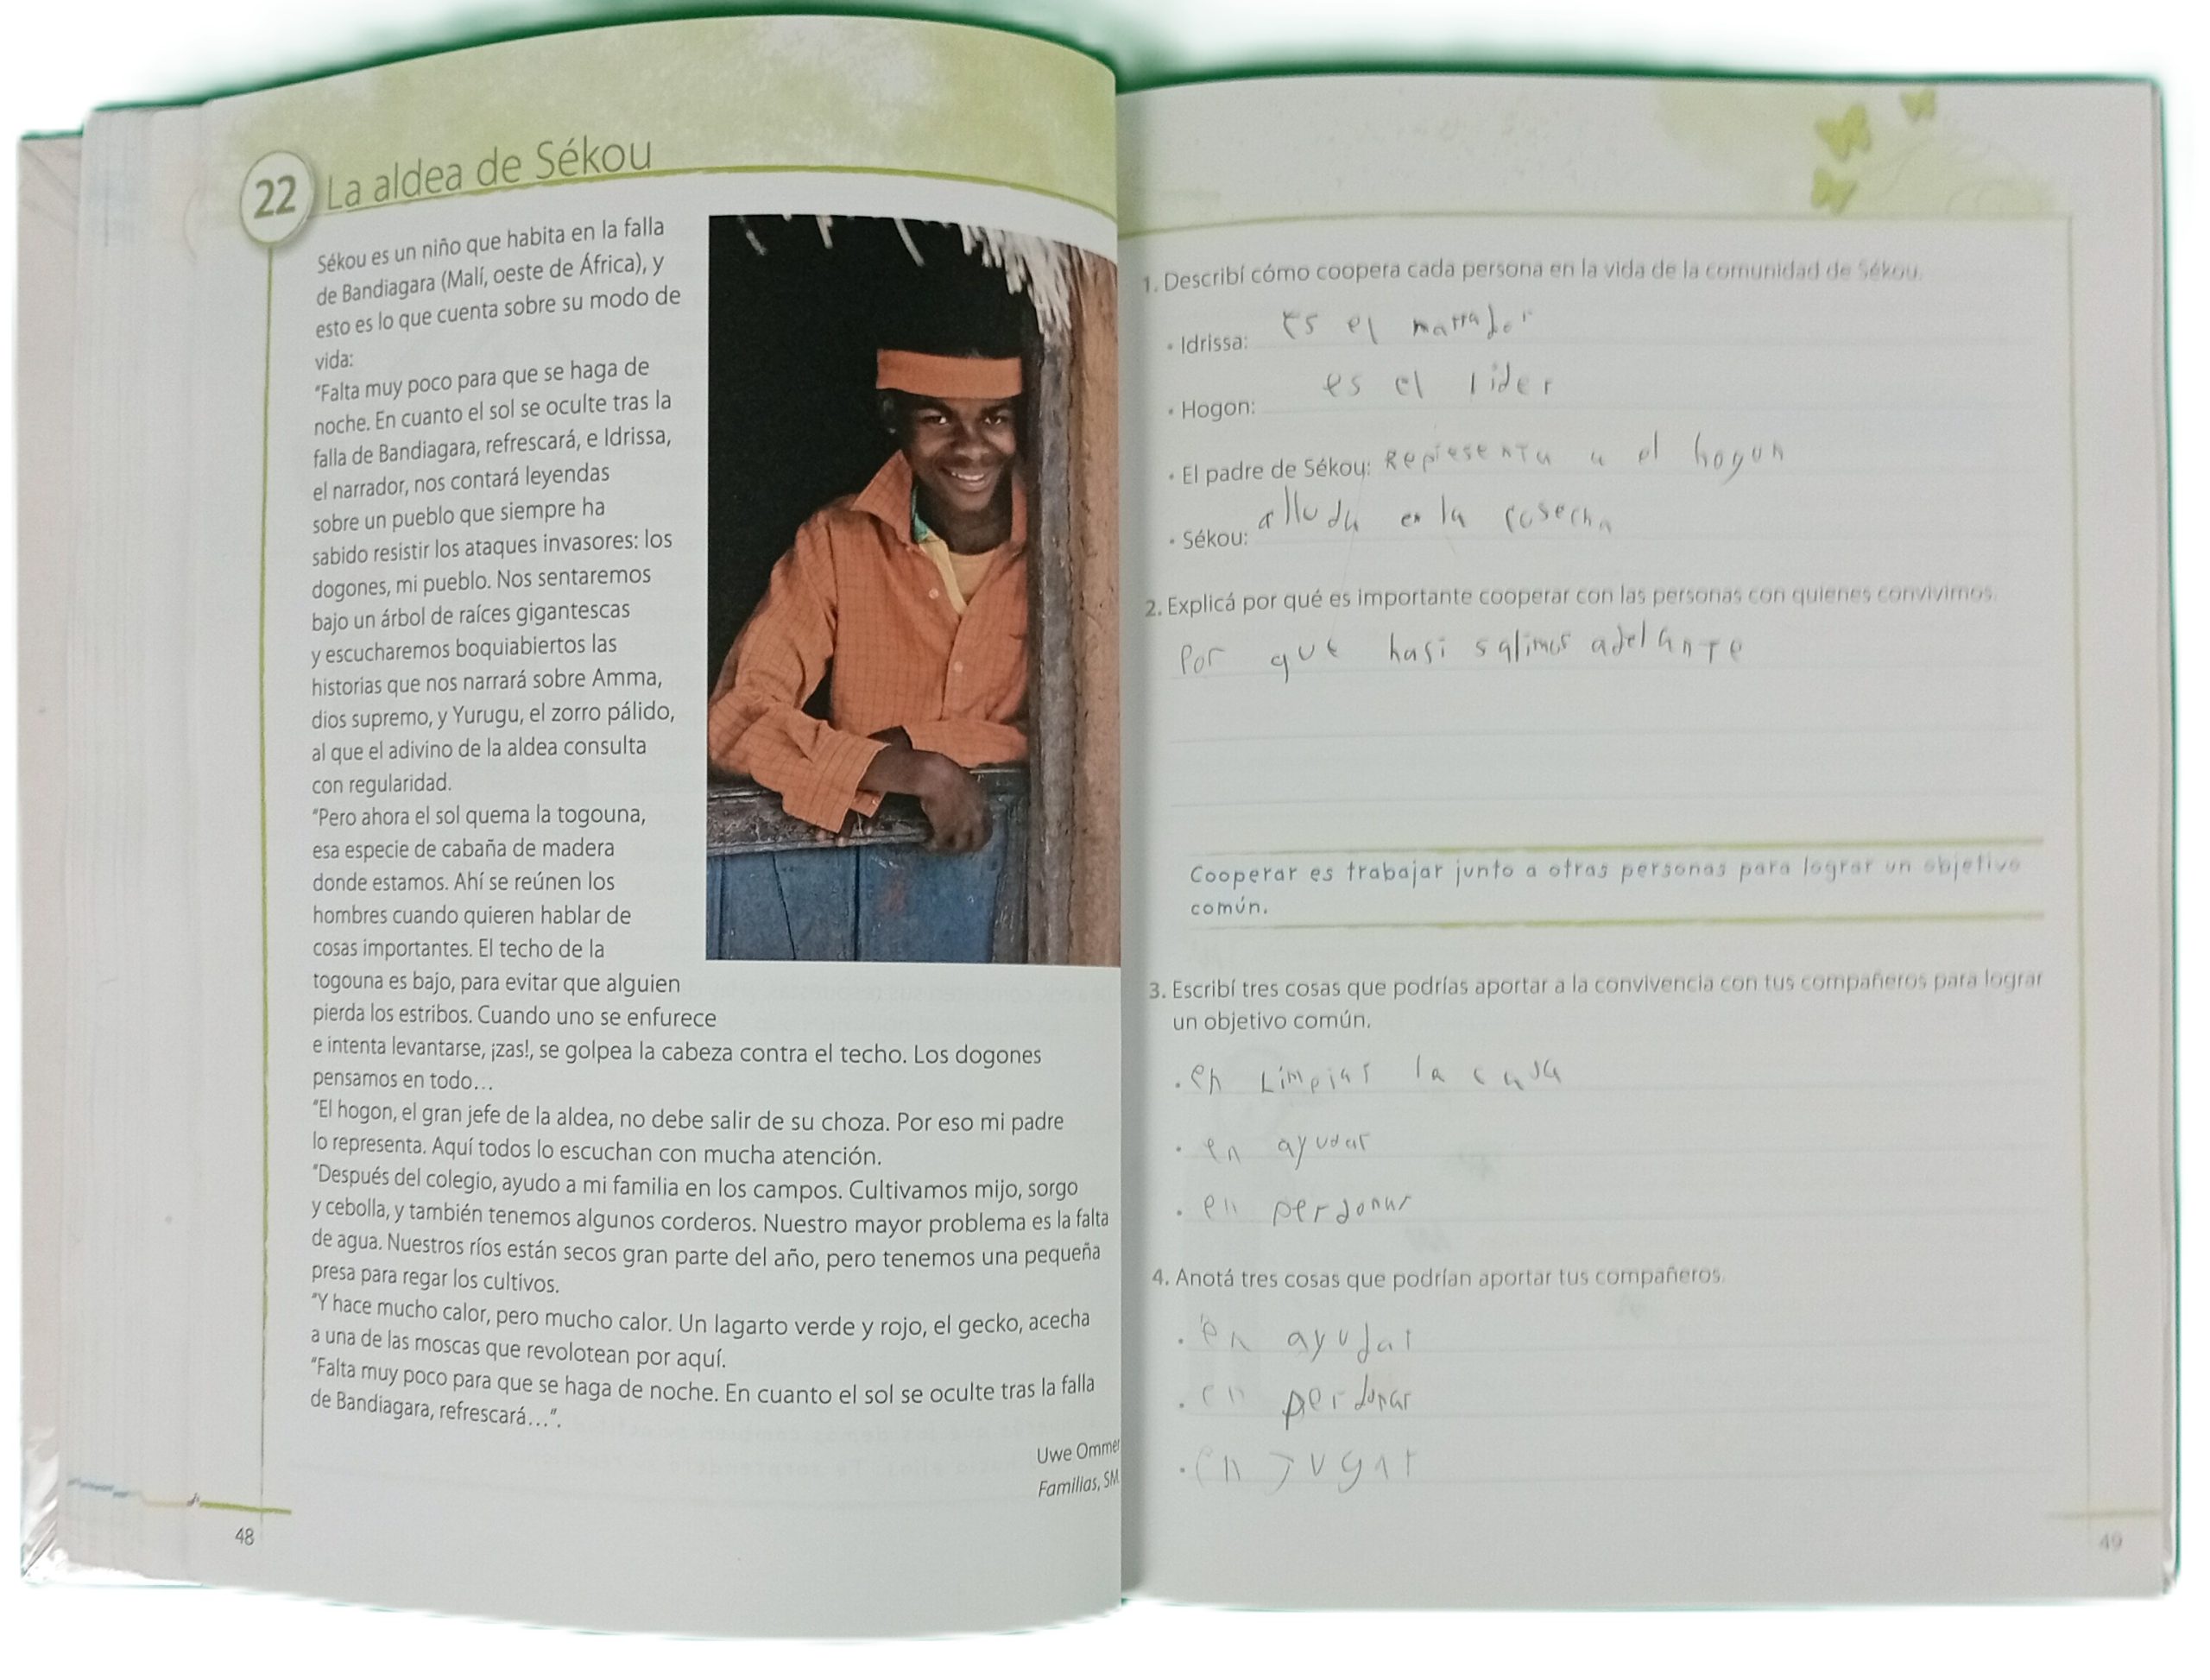 22 La aldea de Sékou
Sékou es un niño que habita en la falla
de Bandiagara (Malí, oeste de África), y
esto es lo que cuenta sobre su modo de
vida:
"Falta muy poco para que se haga de
noche. En cuanto el sol se oculte tras la
falla de Bandiagara, refrescará, e Idrissa,
el narrador, nos contará leyendas
sobre un pueblo que siempre ha
sabido resistir los ataques invasores: los
dogones, mi pueblo. Nos sentaremos
bajo un árbol de raíces gigantescas
y escucharemos boquiabiertos las
historias que nos narrará sobre Amma,
dios supremo, y Yurugu, el zorro pálido,
al que el adivino de la aldea consulta
con regularidad.
"Pero ahora el sol quema la togouna,
esa especie de cabaña de madera
donde estamos. Ahí se reúnen los
hombres cuando quieren hablar de
cosas importantes. El techo de la
togouna es bajo, para evitar que alguien
pierda los estribos. Cuando uno se enfurece
e intenta levantarse, ¡zas!, se golpea la cabeza contra el techo. Los dogones
pensamos en todo...
"El hogon, el gran jefe de la aldea, no debe salir de su choza. Por eso mi padre
lo representa. Aquí todos lo escuchan con mucha atención.
"Después del colegio, ayudo a mi familia en los campos. Cultivamos mijo, sorgo
y cebolla, y también tenemos algunos corderos. Nuestro mayor problema es la falta
de agua. Nuestros ríos están secos gran parte del año, pero tenemos una pequeña
presa para regar los cultivos.
"Y hace mucho calor, pero mucho calor. Un lagarto verde y rojo, el gecko, acecha
a una de las moscas que revolotean por aquí.
"Falta muy poco para que se haga de noche. En cuanto el sol se oculte tras la falla
de Bandiagara, refrescará...".
Uwe Ommer
Familias, SM
48
1. Describí cómo coopera cada persona en la vida de la comunidad de Sékou.
• Idrissa: Es el narrador
• Hogon: es el lider
• El padre de Sékou: Representa a el hogon
• Sékou: alluda en la cosecha
2. Explicá por qué es importante cooperar con las personas con quienes convivimos.
Por que hasi salimos adelante
Cooperar es trabajar junto a otras personas para lograr un objetivo
común.
3. Escribí tres cosas que podrías aportar a la convivencia con tus compañeros para lograr
un objetivo común.
• en Limpiar la casa
• en ayudar
• en perdonar
4. Anotá tres cosas que podrían aportar tus compañeros.
• en ayudar
• en perdonar
• en jugar
49